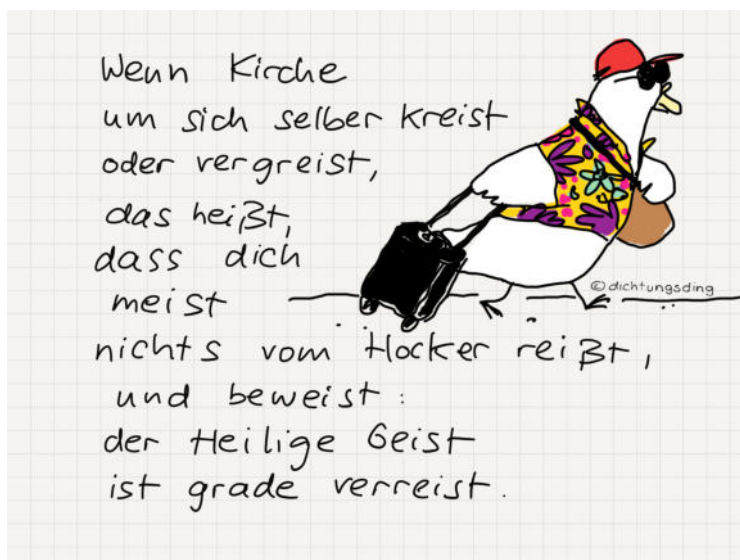 Wenn Kirche
um sich selber kreist
oder vergreist,
das heißt,
dass dich
meist
nichts vom Hocker reißt,
und beweist:
der Heilige Geist
ist grade verreist.
© dichtungsding